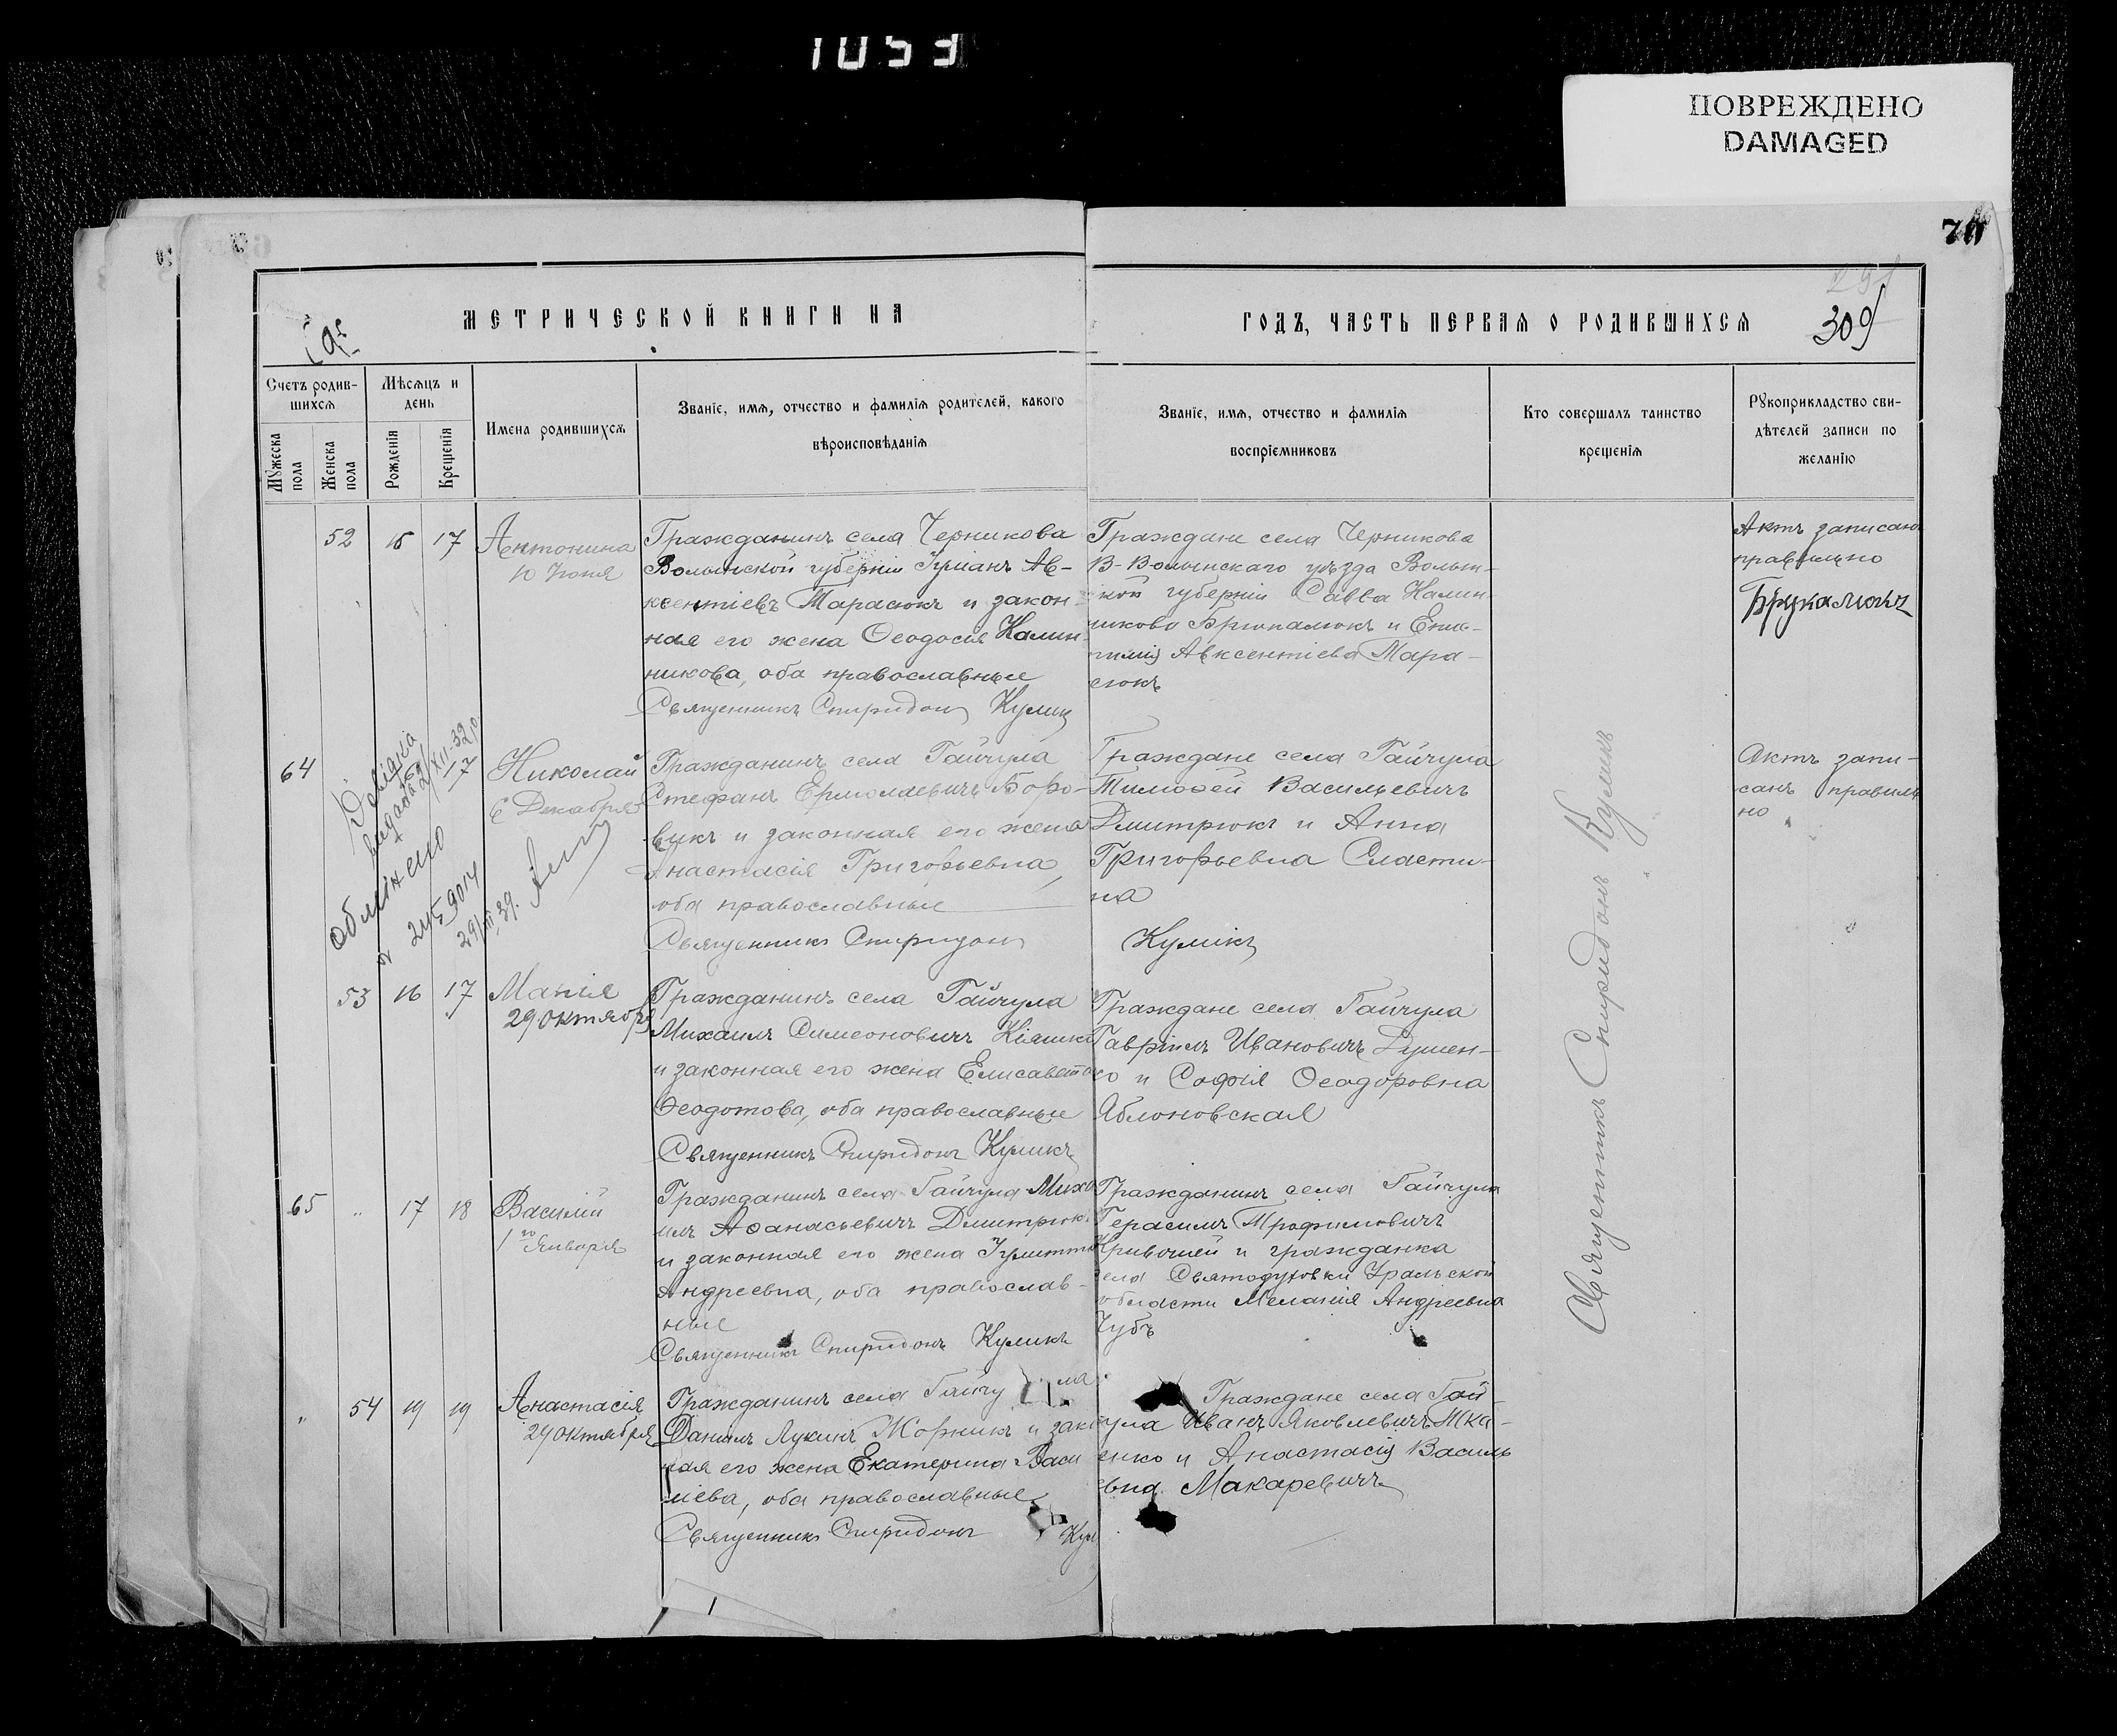 1053
ПОВРЕЖДЕНО
DAMAGED
309
МЕТРИЧЕСКОЙ КНИГИ НА
ГОДЪ, ЧАСТЬ ПЕРВАЯ О РОДИВШИХСЯ
Счетъ родив-
шихся
Мужеска
пола
Женска
пола
Мѣсяцъ и
день
Рожденія
Крещенія
Имена родившихся
Званіе, имя, отчество и фамилія родителей, какого
вѣроисповѣданія
Званіе, имя, отчество и фамилія
воспріемниковъ
Кто совершалъ таинство
крещенія
Рукоприкладство сви-
дѣтелей записи по
желанію
52 16 17
Антонина
10 Іюня
Гражданинъ села Черникова
Волынской губерніи Іуліанъ Ав-
ксентіевъ Тарасюкъ и закон-
ная его жена Ѳеодосія Калин-
никова, оба православные
Священникъ Спиридонъ Куликъ
Граждане села Черникова
В-Волынскаго уѣзда Волын-
ской губерніи Савва Калин-
никовъ и
Авксентіева Тара-
сюкъ
Актъ записанъ
правильно
64
видана
обмінено
Николай
6 Декабря
Гражданинъ села Гайчула
Стефанъ Ермолаевичъ Боро-
викъ и законная его жена
Анастасія Григорьевна,
оба православные
Священникъ Спиридонъ
Куликъ
Граждане села Гайчула
Тимоѳей Васильевичъ
Дмитрюкъ и Анна
Григорьевна Сласти-
на
Актъ запи-
санъ правиль
но
53 16 17
Марія
29 Октября
Гражданинъ села Гайчула
Михаилъ Симеоновичъ Кіяшко
и законная его жена Елисавета
Ѳеодотова, оба православные
Священникъ Спиридонъ Куликъ
Граждане села Гайчула
Гавріилъ Ивановичъ Думен-
ко и Софія Ѳеодоровна
Яблоновская
65 " 17 18
Василій
1го Января
Гражданинъ села Гайчула Миха
илъ Аѳанасьевичъ Дмитрюкъ
и законная его жена Іулитта
Андреевна, оба православ-
ные
Священникъ Спиридонъ Куликъ
Гражданинъ села Гайчула
Герасимъ Трофимовичъ
Кривошей и гражданка
села Святодуховки Уральской
области Меланія Андреевна
Чубъ
" 54 19 19
Анастасія
29 Октября
Гражданинъ села Гайчу ла
Даніилъ Лукинъ Жорникъ и зак
ная его жена Екатерина Васи
ліева, оба православные
Священникъ Спиридонъ Кул
Граждане села Гай-
чула Иванъ Яковлевичъ Тка-
ченко и Анастасія Василь
евна Макаревичъ
Священникъ Спиридонъ Куликъ